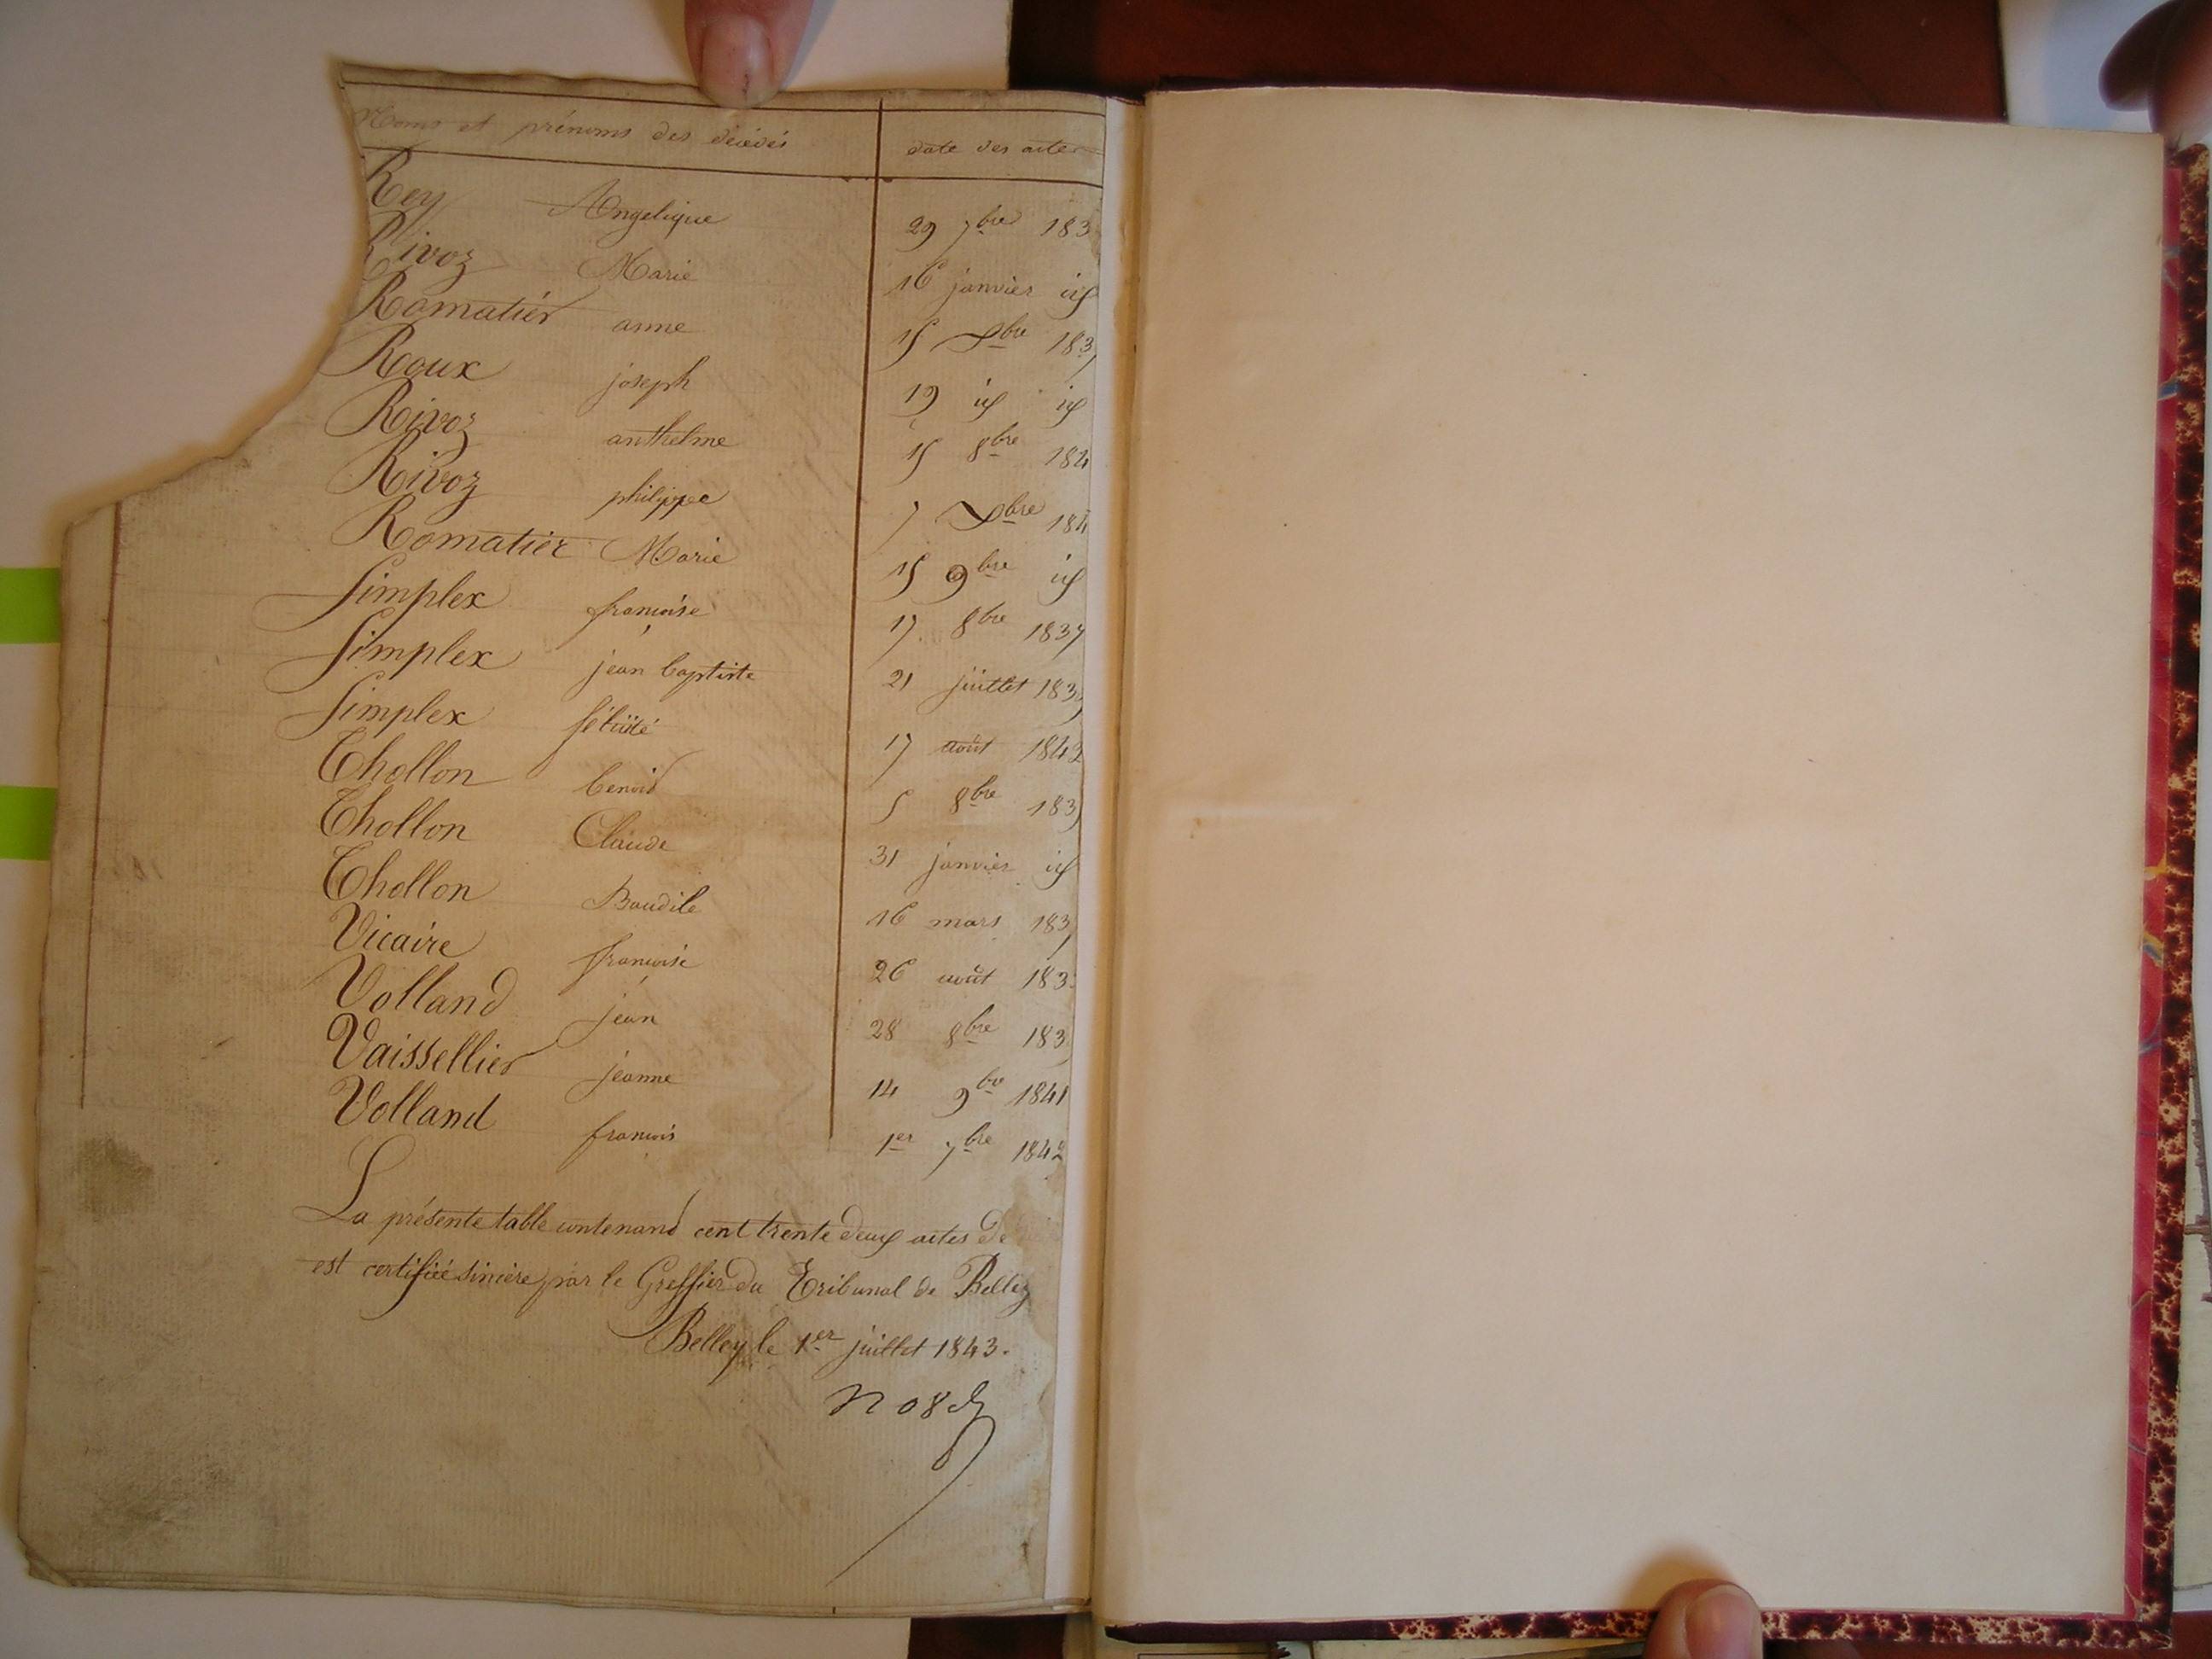 Noms et prénoms des décédés date des actes
Rey Angelique 29 7bre 183
Rivoz Marie 16 janvier id
Romatier anne 15 Xbre 183
Roux joseph 19 id id
Rivoz anthelme 15 8bre 184
Rivoz philippe 7 Xbre 184
Romatier Marie 15 9bre id
Simplex francoise 17 8bre 1837
Simplex jean baptiste 21 juillet 183
Simplex félicité 17 août 1842
Thollon benoid 5 8bre 183
Thollon Claude 31 janvier id
Thollon Baudile 16 mars 183
Vicaire francoise 26 août 183
Volland jean 28 8bre 183
Vaissellier jeanne 14 9bre 1841
Volland francois 1er 7bre 1842
La présente table contenand cent trente deux actes de
est certifiée sincère par le Greffier du Tribunal de Belley
Belley le 1er juillet 1843.